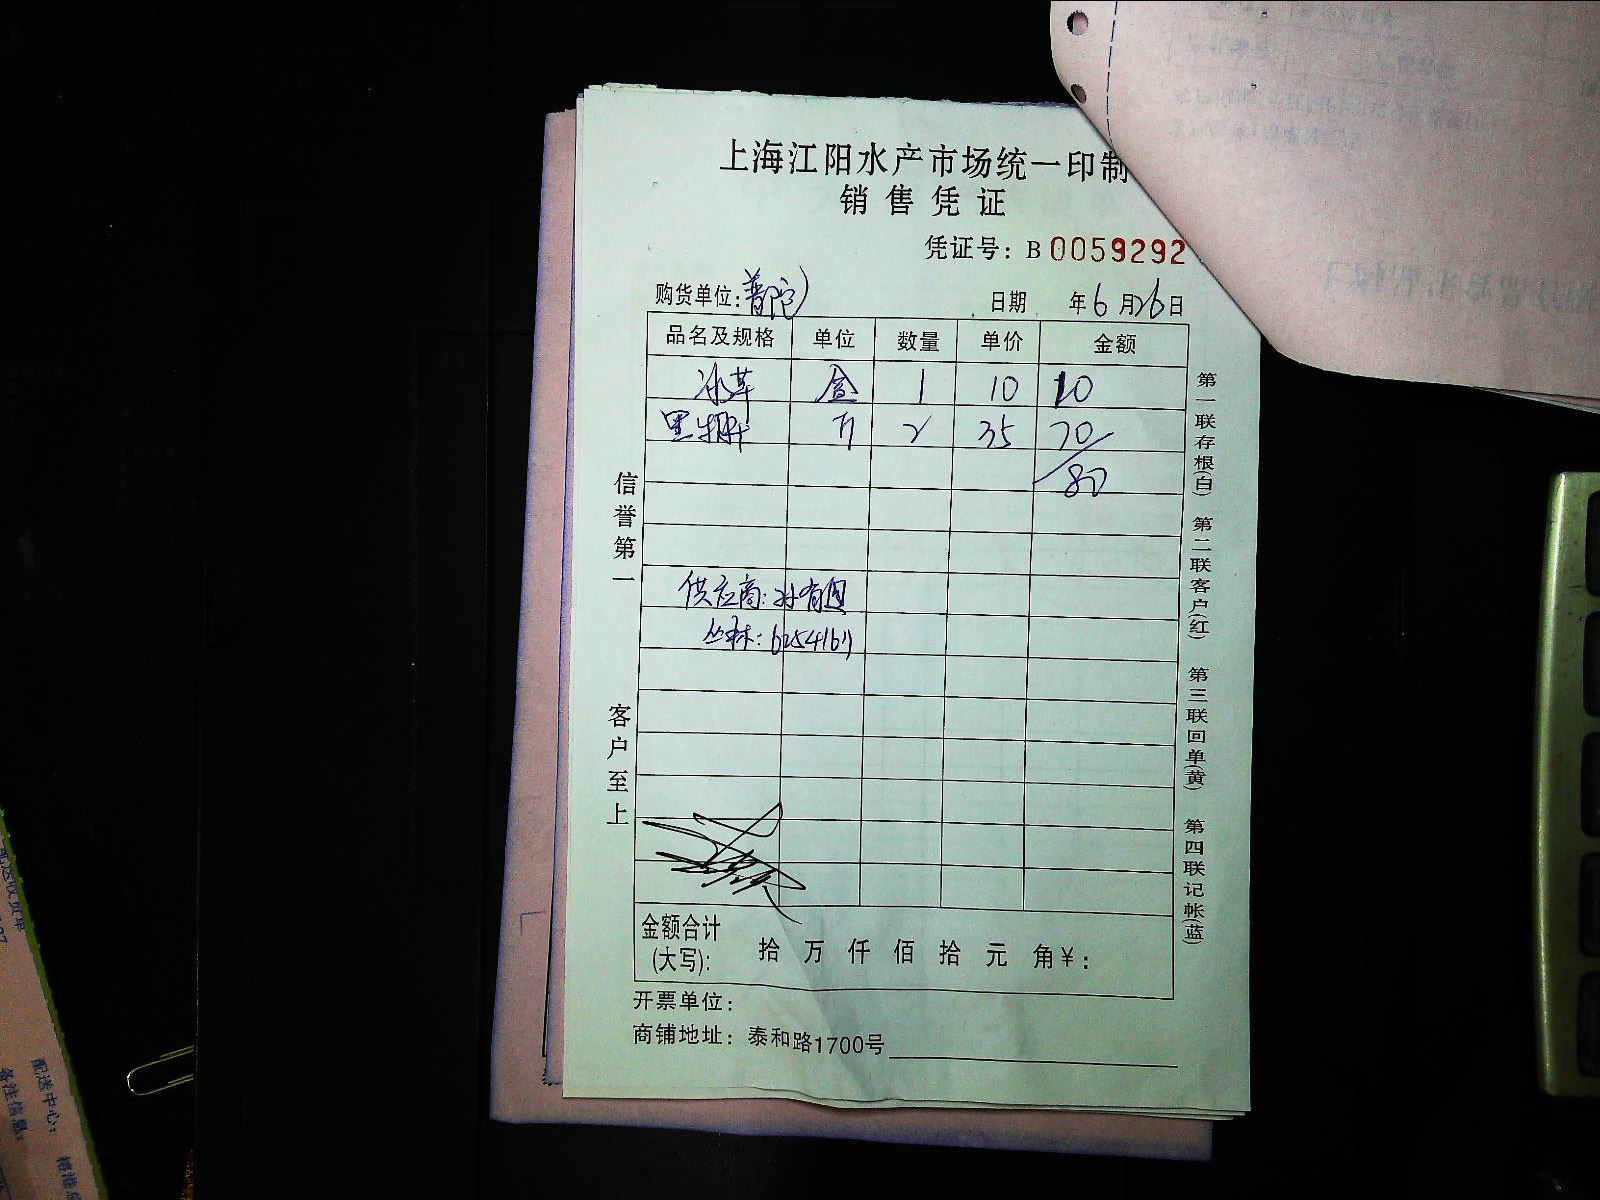 上海江阳水产市场统一印制
销售凭证
凭证号：B 0059292
购货单位：普陀 日期 年6月26日
品名及规格 单位 数量 单价 金额
冰草 盒 1 10 10
黑 斤 2 35 70
80
供应商：孙有国
丛林：
信誉第一
客户至上
第一联存根(白) 第二联客户(红) 第三联回单(黄) 第四联记帐(蓝)
金额合计
(大写)： 拾 万 仟 佰 拾 元 角 ¥：
开票单位：
商铺地址：泰和路1700号
配送中心：
备注信息：